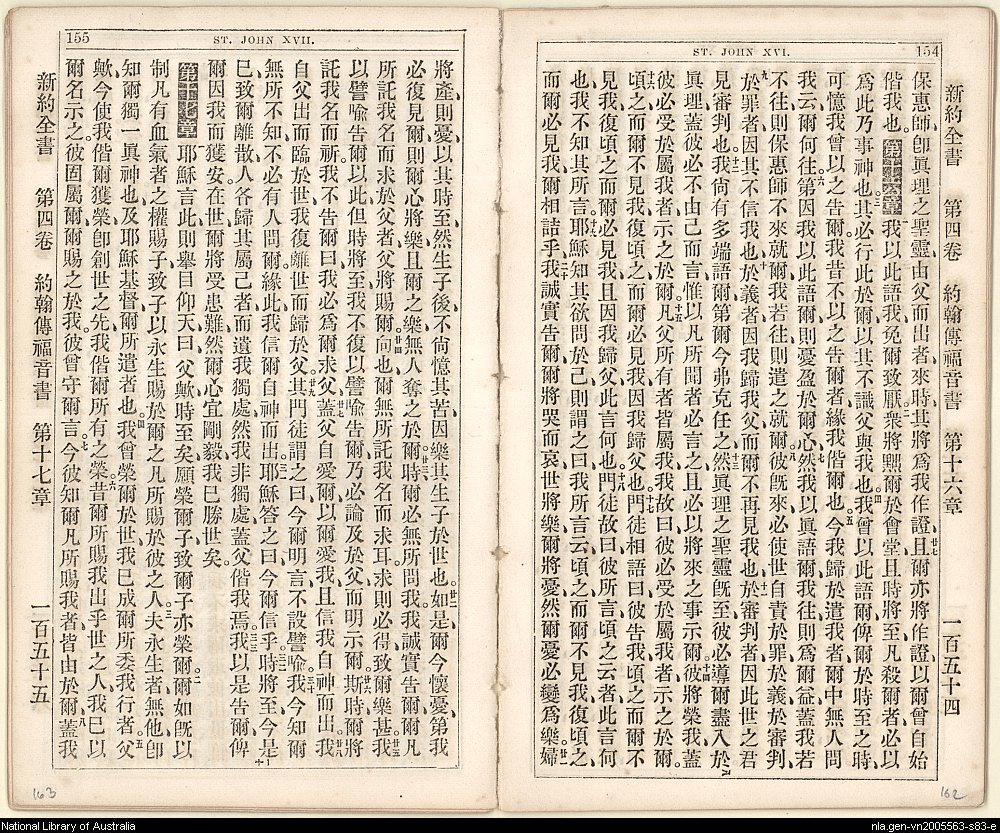 ST. JOHN XVI. 154
新約全書 第四卷 約翰傳福音書 第十六章 一百五十四
保惠師、卽眞理之聖靈、由父而出者、來時其將爲我作證、廿七且爾亦將作證、以爾曾自始
偕我也。第十六章 我以此語我、免爾致厭、二衆將黜爾於會堂、且時將至、凡殺爾者、必以
爲此乃事神也。三其必行此於爾、以其不識父與我也。四我曾以此語爾、俾爾於時至之時、
可憶我曾以之告爾、我昔不以之告爾者、緣我偕爾也。五今我歸於遣我者、爾中無人問
我云、爾何往、六第因我以此語爾、則憂盈於爾心、七然我以眞語爾、我往則爲爾益、蓋我若
不往、則保惠師不來就爾、我若往、則遣之就爾。八彼旣來、必使世自責、於罪於義於審判、
九於罪者、因其不信我也。十於義者、因我歸我父、而爾不再見我也。十一於審判者、因此世之君
見審判也。十二我尙有多端語爾、第爾今弗克任之、十三然眞理之聖靈旣至、彼必導爾盡入於
眞理、蓋彼必不由己而言、惟以凡所聞者必言之、且必以將來之事示爾。十四彼將榮我、蓋
彼必受於屬我者、示之於爾。十五凡父所有者、皆屬我、我故曰、彼必受於屬我者、示之於爾。
十六頃之而爾不見我、復頃之而爾必見我、因我歸父也。十七門徒相語曰、彼告我頃之而爾不
見我、復頃之而爾必見我、且因我歸父、此言何也。十八門徒故曰、彼所言頃之云者、此言何
也、我不知其所言。十九耶穌知其欲問於己、則謂之曰、我所言云、頃之而爾不見我、復頃之、
而爾必見我、爾相詰乎、二十我誠實告爾、爾將哭而哀、世將樂、爾將憂、然爾憂必變爲樂。廿一婦
162
155 ST. JOHN XVII.
將產、則憂、以其時至、然生子後、不尙憶其苦、因樂其生子於世也。廿二如是爾今懷憂、第我
必復見爾、則爾心將樂、且爾之樂、無人奪之於爾。廿三爾時必無所問我、我誠實告爾、爾凡
所託我名而求於父者、父將賜爾。廿四向也爾無所託我名而求耳、求則必得、致爾樂甚。廿五我
以譬喻告爾以此、但時將至、我不復以譬喻告爾、乃必論及於父而明示爾。廿六斯時爾將
託我名而祈、我不告爾曰、我必爲爾求父、廿七蓋父自愛爾、以爾愛我、且信我自神而出。廿八我
自父出而臨於世、我復離世而歸於父。廿九其門徒謂之曰、今爾明言、不設譬喻、三十我今知爾
無所不知、不必有人問爾、緣此我信爾自神而出。三一耶穌答之曰、今爾信乎、三二時將至、今是
已、致爾離散、人各歸其屬己者、而遺我獨處、然我非獨處、蓋父偕我焉。三三我以是告爾、俾
爾因我而獲安、在世爾將受患難、然爾心宜剛毅、我已勝世矣。
第十七章 一耶穌言此、則舉目仰天曰、父歟、時至矣、願榮爾子、致爾子亦榮爾、二爾如旣以
制凡有血氣者之權賜子、致子以永生賜於爾之凡所賜於彼之人、三夫永生者無他、卽
知爾獨一眞神也、及耶穌基督爾所遣者也。四我曾榮爾於世、我已成爾所委我行者、五父
歟、今使我偕爾獲榮、卽創世之先、我偕爾所有之榮。六昔爾所賜我出乎世之人、我已以
爾名示之、彼固屬爾、爾賜之於我、彼曾守爾言、七今彼知爾凡所賜我者、皆由於爾、八蓋我
新約全書 第四卷 約翰傳福音書 第十七章 一百五十五
163
National Library of Australia
nla.gen-vn2005563-s83-e